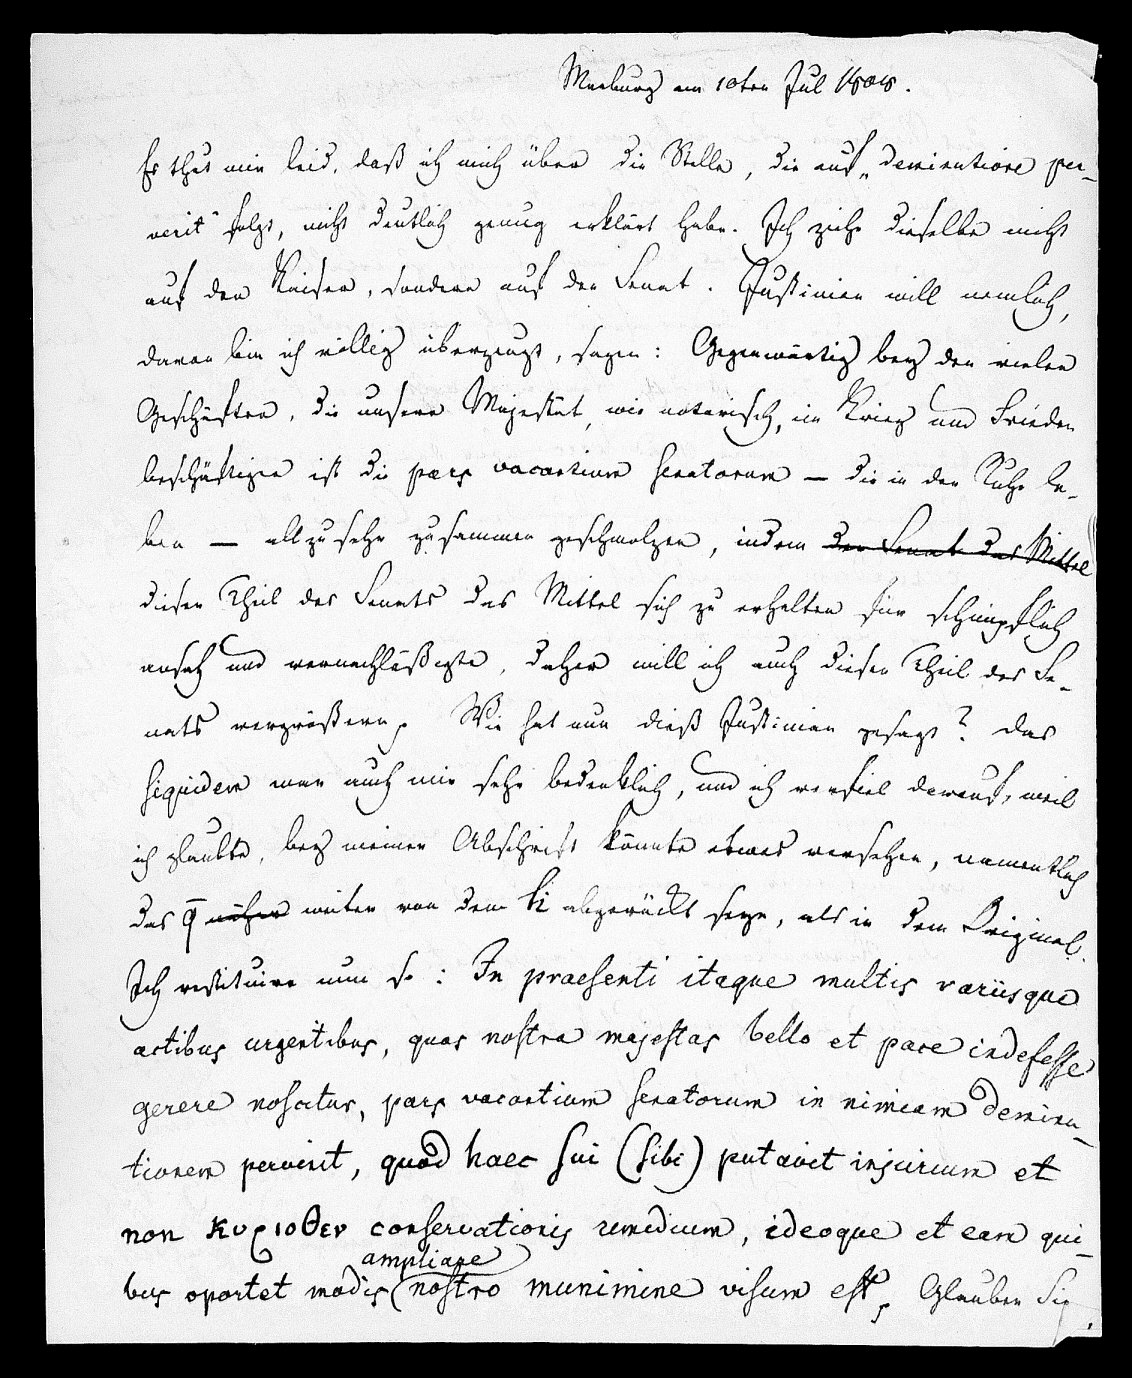 Marburg am 10ten Jul 1808.
Es thut mir leid, daß ich mich über die Stelle, die auf „deminutione per-
venit“ folgt, nicht deutlich genug erklärt habe. Ich ziehe dieselbe nicht
auf den Kaiser, sondern auf den Senat. Justinian will nemlich,
davon bin ich völlig überzeugt, sagen: Gegenwärtig bey den vielen
Geschäften, die unsere Majestät, wie notorisch, in Krieg und Frieden
beschäftigen ist die pars vacantium senatorum — die in der Ruhe le-
ben — allzusehr zusammen geschmolzen, indem der Senat das Mittel
dieser Theil des Senats das Mittel sich zu erhalten für schimpflich
ansah und vernachläßigte, daher will ich auch diesen Theil des Se-
nats vergrößern. Wie hat nun dieß Justinian gesagt? Das
siquidem war auch mir sehr bedenklich, und ich verfiel darauf, weil
ich glaubte, bey meiner Abschrift könnte etwas versehen, namentlich
das q̄ näher weiter von dem si abgerückt seyn, als in dem Original.
Ich restituire nun so: In praesenti itaque multis variisque
actibus urgentibus, quos nostra majestas bello et pace indefesse
gerere noscitur, pars vacantium senatorum in nimiam deminu-
tionem pervenit, quod haec sui (sibi) putavit injurium et
non κυριοθεν conservationis remedium, ideoque et eam qui-
ampliare
bus oportet modis (nostro munimine visum est. Glauben Sie